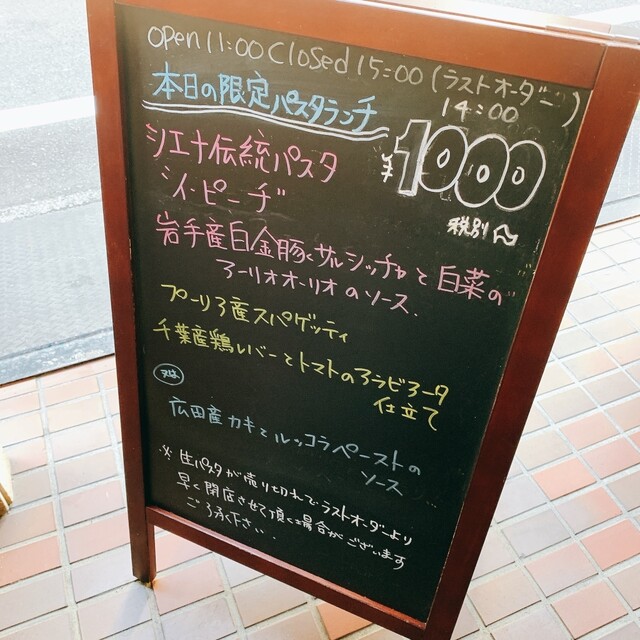 open 11:00 Closed 15:00 (ラストオーダー)
14:00
本日の限定パスタランチ
¥1000
税別
シエナ伝統パスタ
ピーチ
岩手産白金豚サルシッチャと白菜の
アーリオオーリオのソース.
プーリア産スパゲッティ
千葉産鶏レバーとトマトのアラビアータ
仕立て
広田産カキとルッコラペーストの
ソース
※生パスタが売り切れでラストオーダーより
早く閉店させて頂く場合がございます
ご了承下さい.